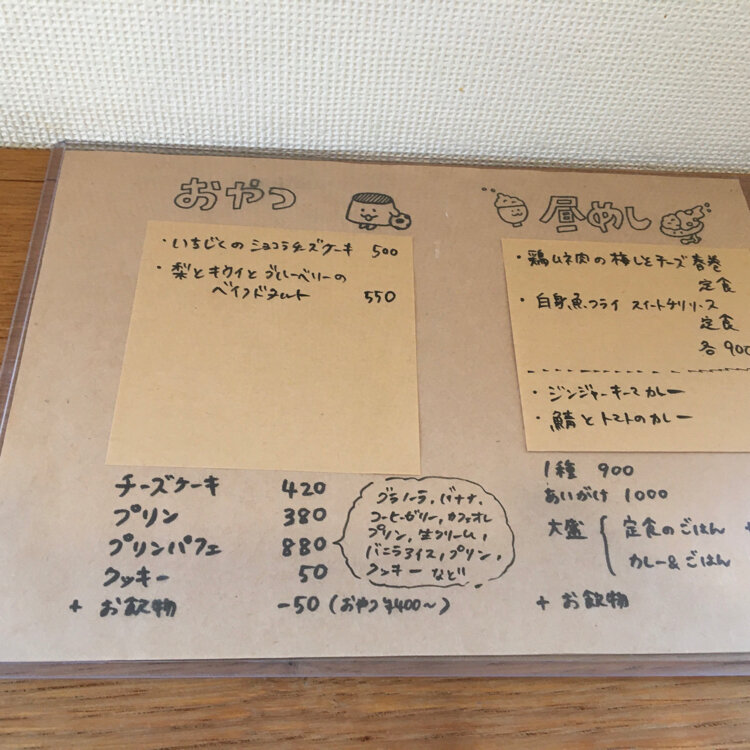 おやつ
・いちじくのショコラチーズケーキ 500
・梨とキウイとブルーベリーの
ベイクドタルト 550
チーズケーキ 420
プリン 380
プリンパフェ 880
クッキー 50
+ お飲物 -50（おやつ¥400〜）
グラノーラ,バナナ,
コーヒーゼリー,カフェオレ
プリン,生クリーム,
バニラアイス,プリン,
クッキー など!!
昼めし
・鶏ムネ肉の梅しそチーズ春巻
定食
・白身魚フライ スイートチリソース
定食
各900
・ジンジャーキーマカレー
・鯖とトマトのカレー
1種 900
あいがけ 1000
大盛 { 定食のごはん
カレー&ごはん
+ お飲物